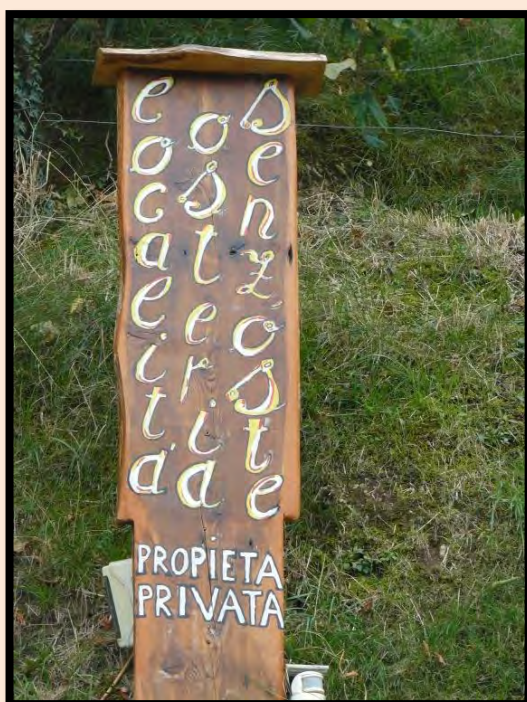 località
osteria
senz'oste
PROPIETA
PRIVATA